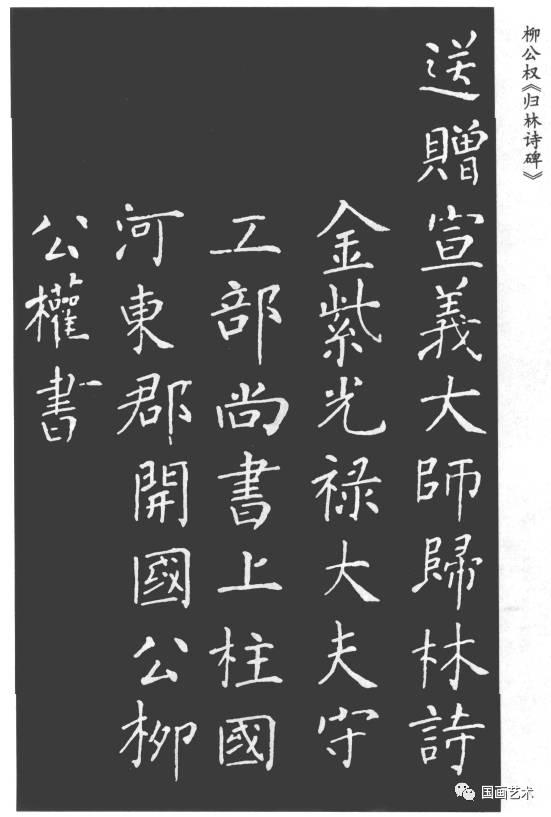 柳公权《归林诗碑》
送贈宣義大師歸林詩
金紫光禄大夫守
工部尚書上柱國
河東郡開國公柳
公權書
国画艺术